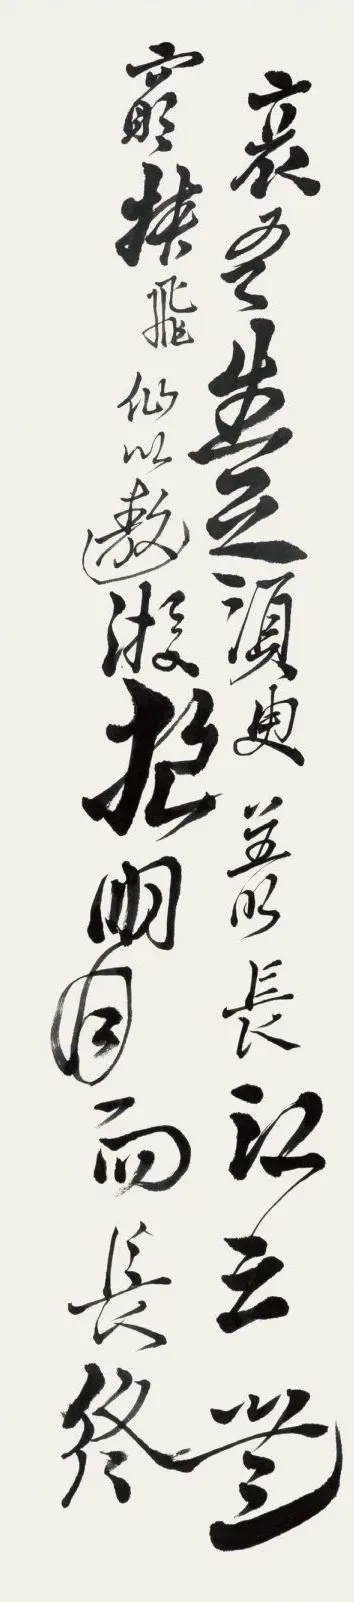 哀吾生之須臾羨長江之無
窮挾飛仙以遨游抱明月而長終